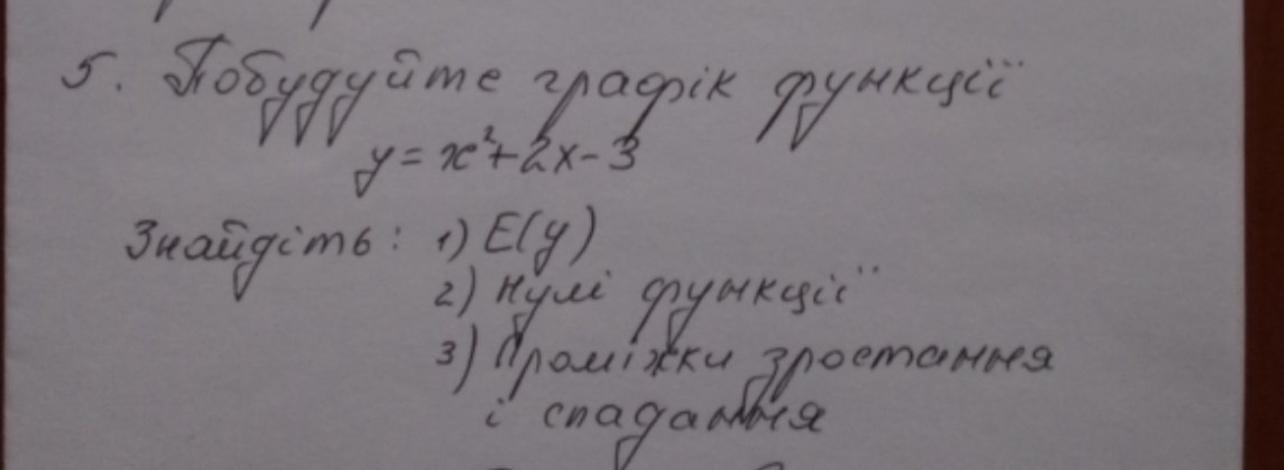 5. Побудуйте графік функції
y = x²+2x-3
Знайдіть: 1) E(y)
2) Нулі функції
3) Проміжки зростання
і спадання